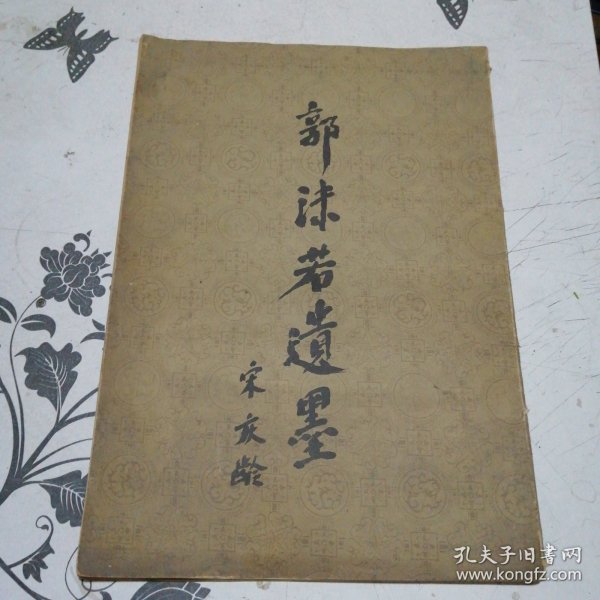 郭沫若遗墨
宋庆龄
孔夫子旧书网
www.kongfz.com